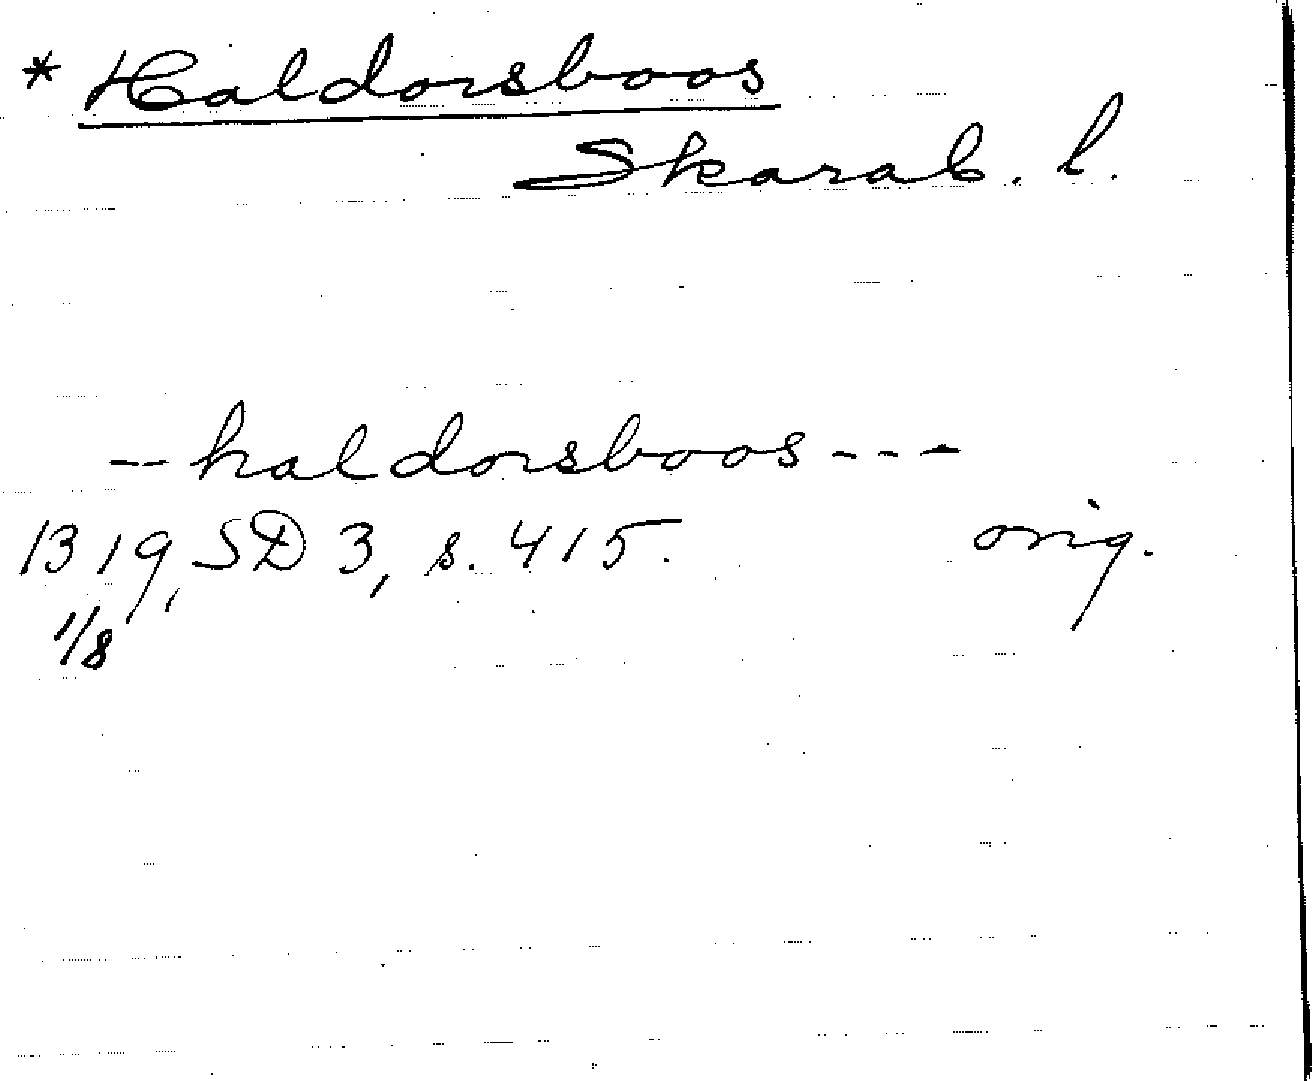 * Haldorsboos
Skarab. l.
-- haldorsboos ---
1319, SD 3, s. 415. orig.
1/8